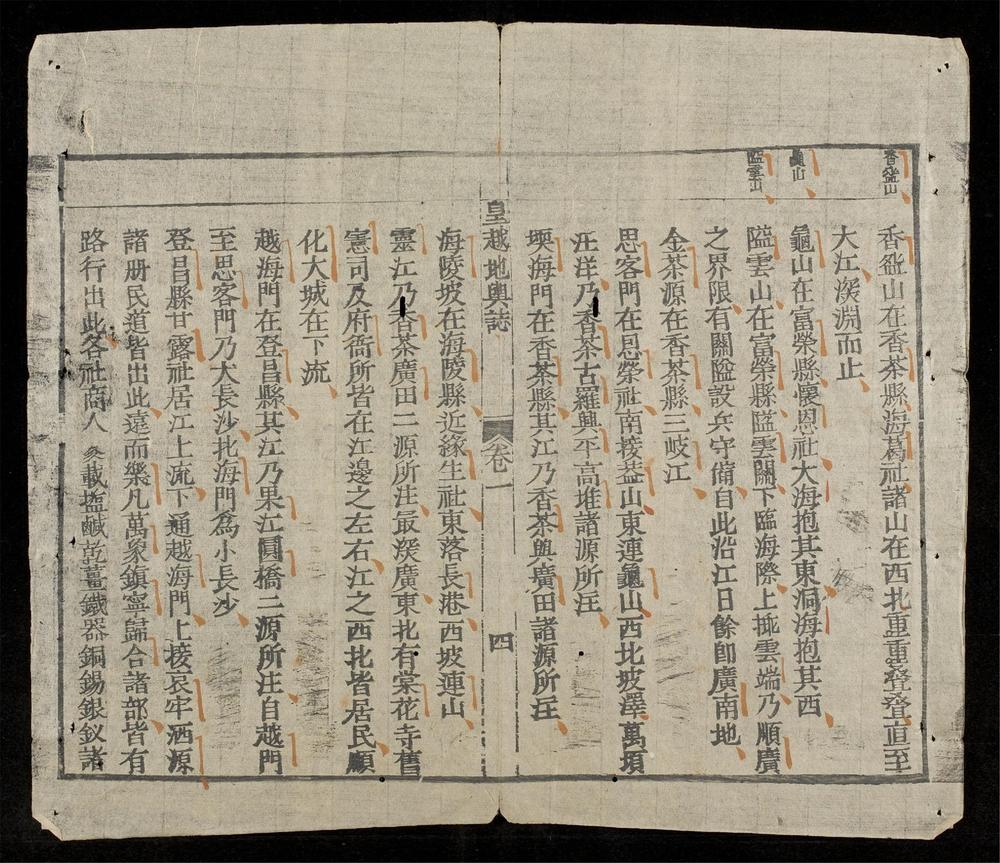 香盆山
龜山
隘雲山
香盆山在香茶縣海葛社諸山在西北重重疊疊直至
大江深淵而止
龜山在富榮縣懷恩社大海抱其東洞海抱其西
隘雲山在富榮縣隘雲關下臨海際上摭雲端乃順廣
之界限有關隘設兵守備自此沿江日餘卽廣南地
金茶源在香茶縣三岐江
思客門在思榮社南接益山東連龜山西北坡澤萬頃
汪洋乃香茶古羅興平高堆諸源所注
堧海門在香茶縣其江乃香茶與廣田諸源所注
皇越地輿誌
卷一
四
海陵坡在海陵縣近緣生社東落長港西坡連山
靈江乃香茶廣田二源所注最深廣東北有棠花寺舊
憲司及府衙所皆在江邊之左右江之西北皆居民順
化大城在下流
越海門在登昌縣其江乃果江圓橋二源所注自越門
至思客門乃大長沙北海門爲小長沙
登昌縣甘露社居江上流下通越海門上接哀牢洒源
諸册民道皆出此遠而樂凡萬象鎮寧歸合諸部皆有
路行出此各社商人多載塩鹹乾薑鐵器銅錫銀釵諸